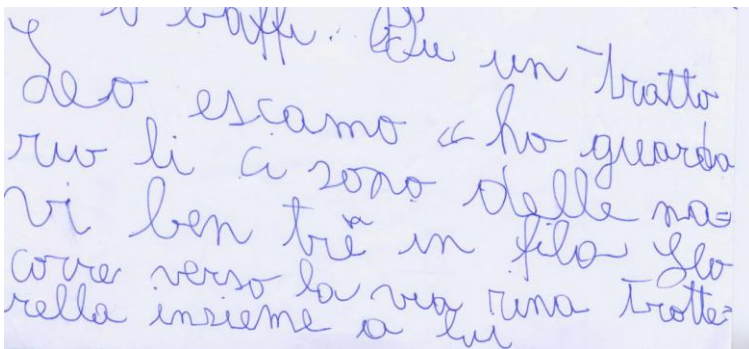 i baffi. un tratto
Leo escamo “ ho guarda
li ci sono delle na=
vi ben tre in fila Leo
corre verso la via rina trotte=
rella insieme a lui